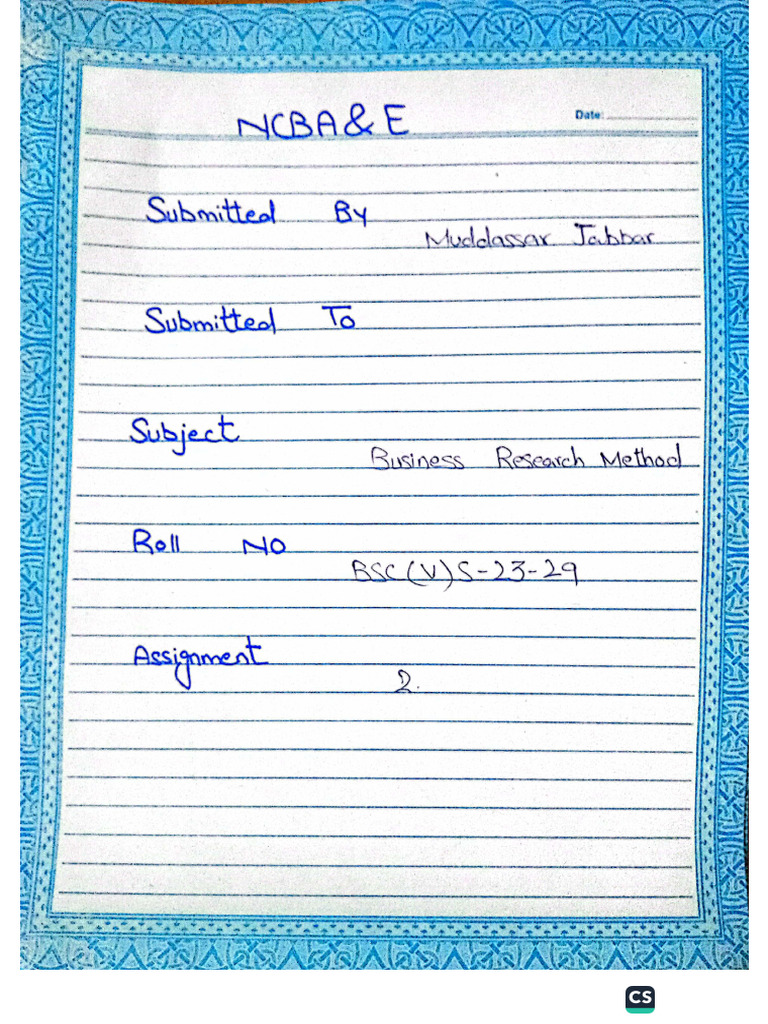 NCBA&E
Date:
Submitted By
Muddassar Jabbar
Submitted To
Subject
Business Research Method
Roll NO
BSC(V)S-23-29
Assignment
2.
CS